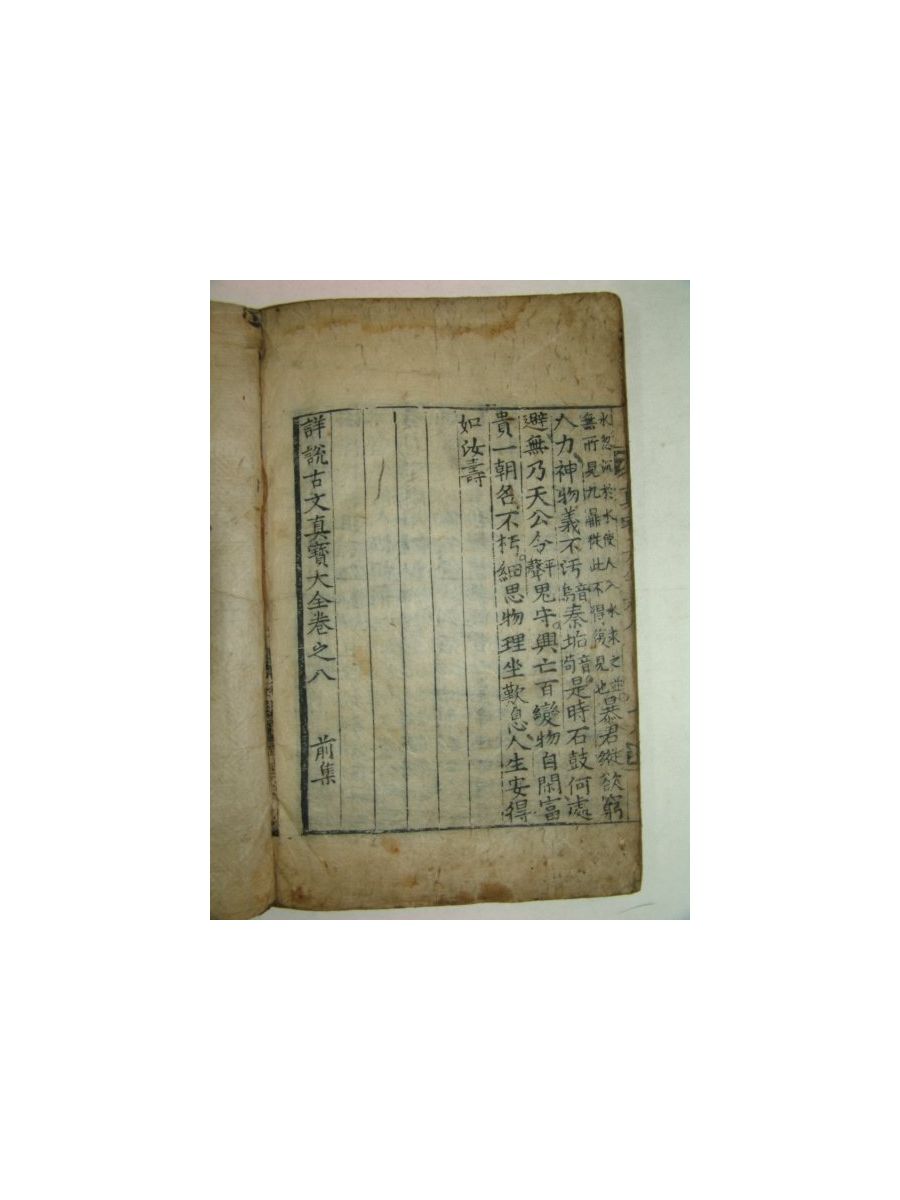 水忽沉於水使人入水求之並
無所見九鼎從此不得復見也
暴君縱欲窮
人力神物義不汚音烏秦垢音苟是時石鼓何處
避無乃天公令平聲鬼守興亡百變物自閑富
貴一朝名不朽細思物理坐歎息人生安得
如汝壽
詳說古文真寶大全卷之八 前集